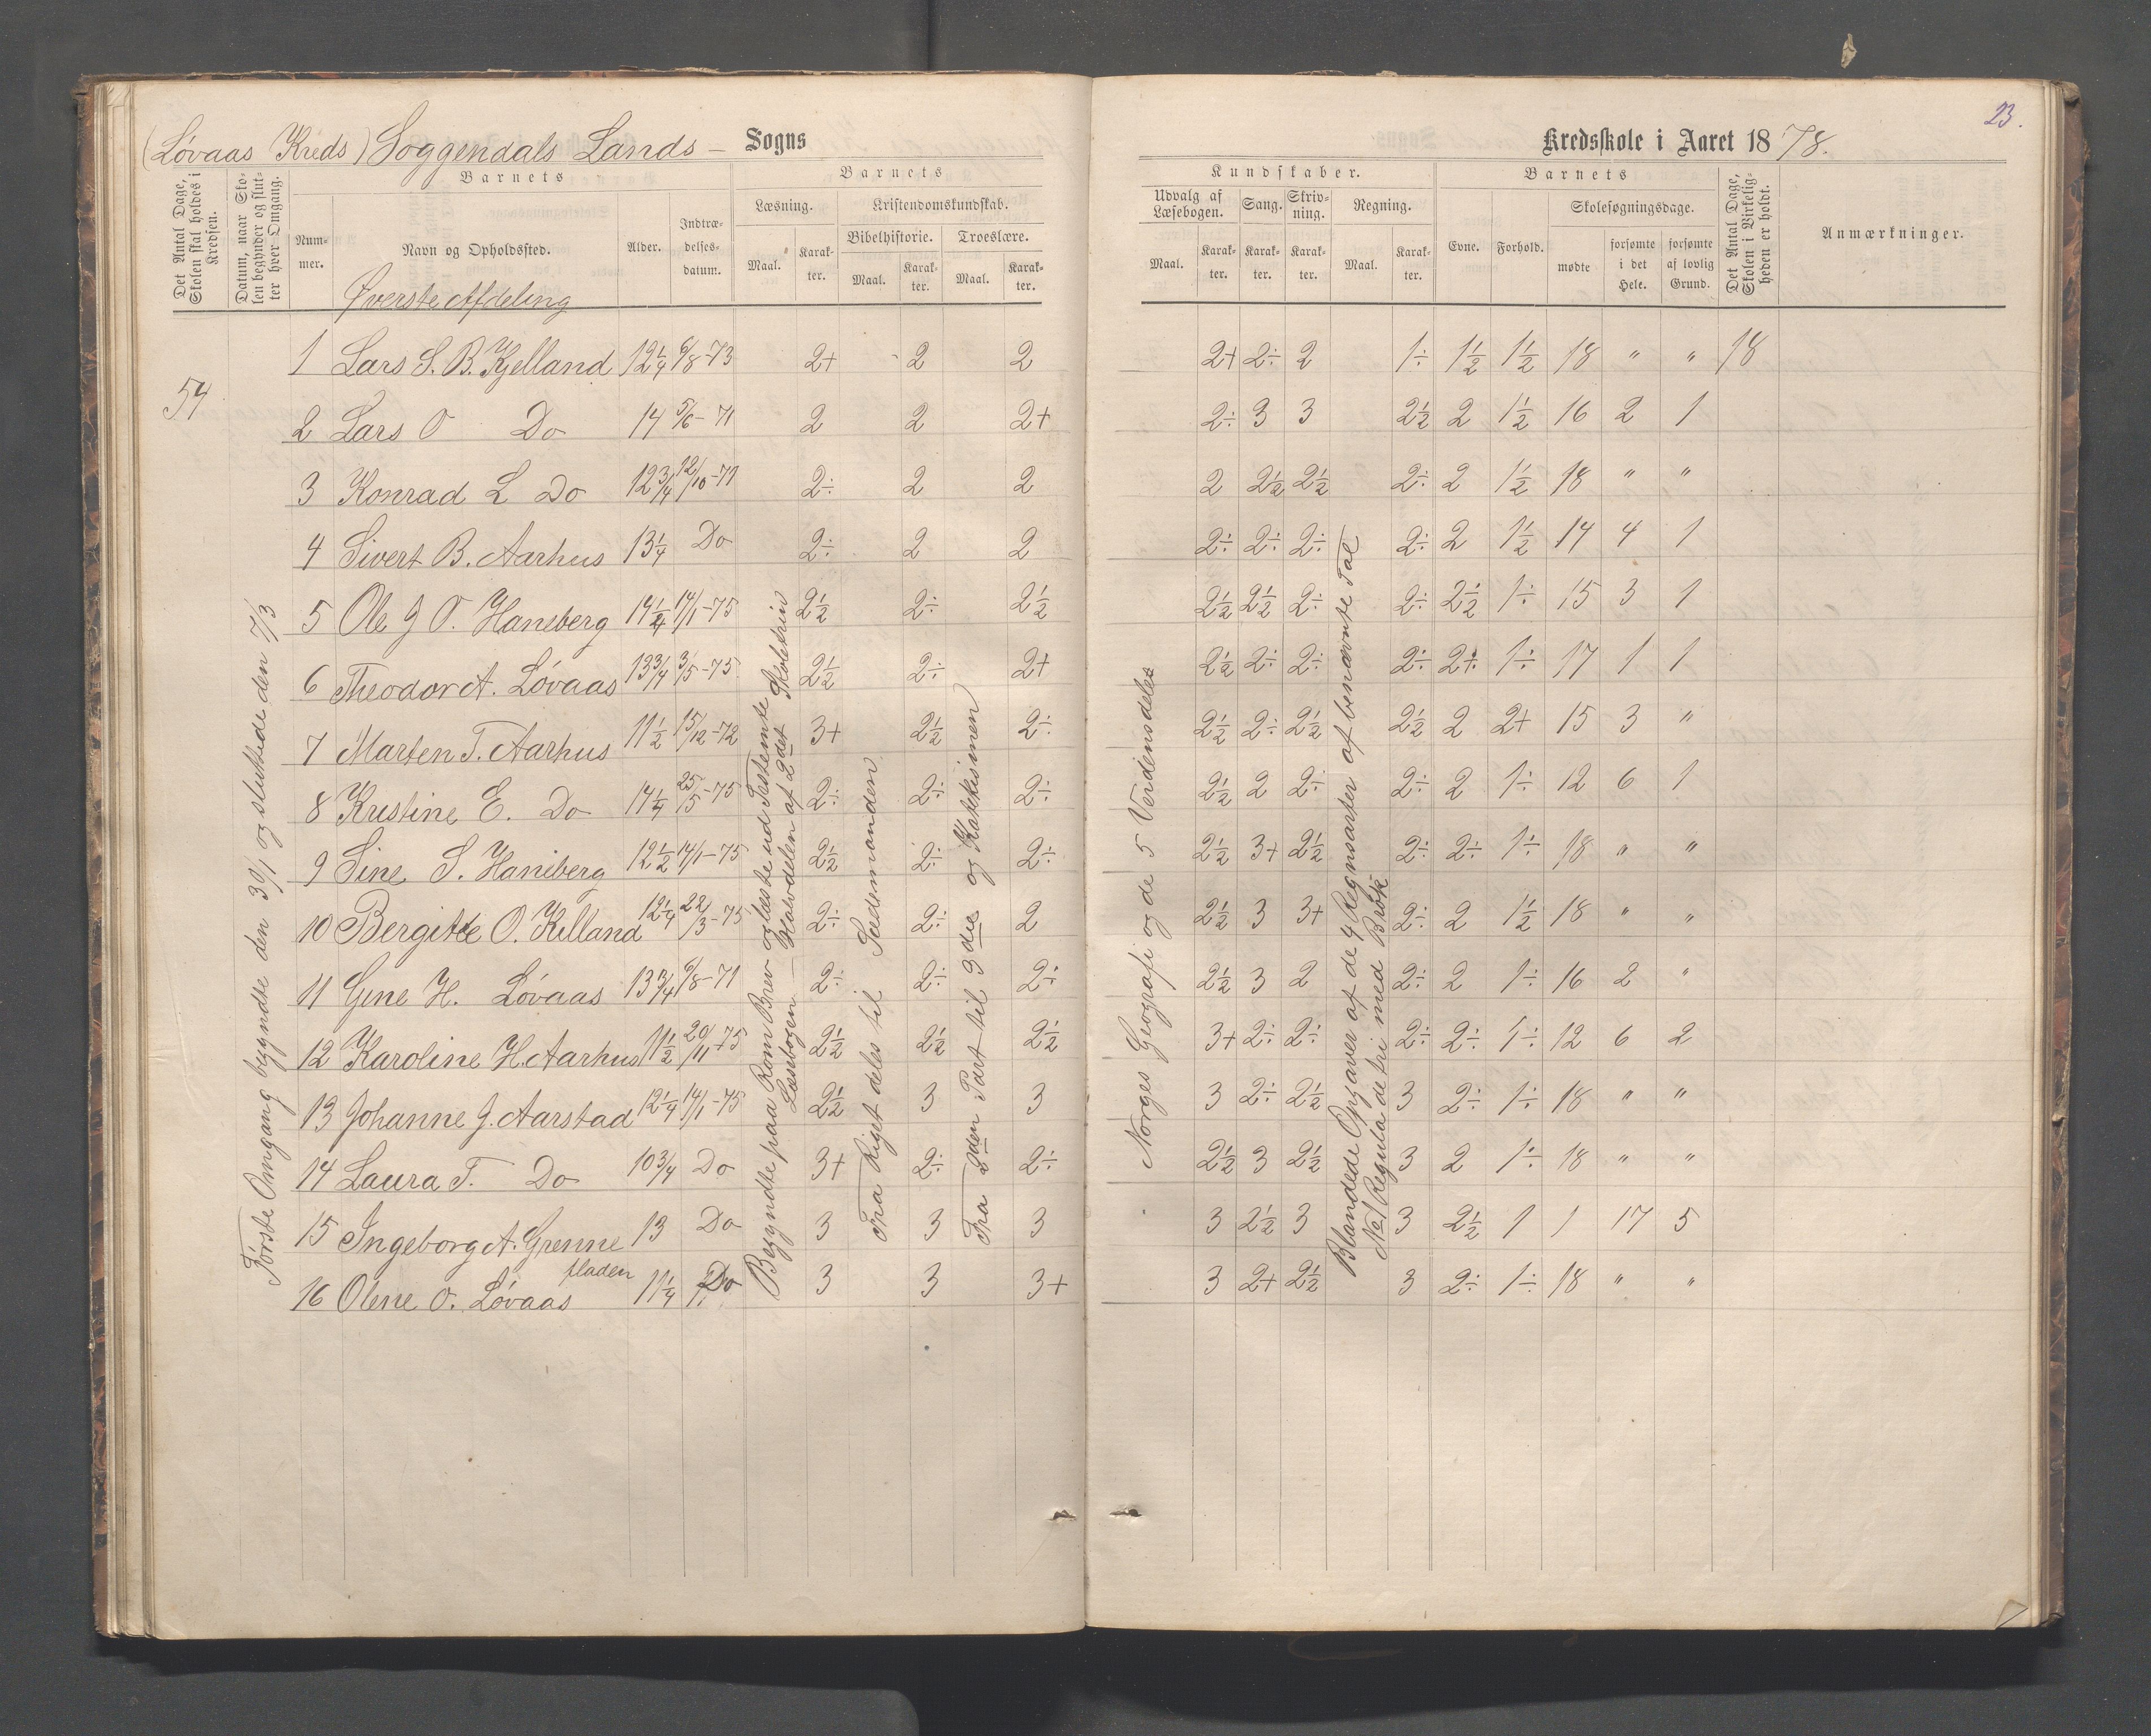 23.
(Løvaas Kreds) Soggendals Lands – Sogns
Kredsskole i Aaret 1878.
Det Antal Dage, Skolen skal holdes i Kredsen.
Datum, naar Skolen begynder og slutter hver Omgang.
Barnets
Nummer.
Navn og Opholdssted.
Alder.
Indtrædelsesdatum.
Barnets
Læsning.
Maal.
Karakter.
Kristendomskundskab.
Bibelhistorie.
Maal.
Karakter.
Troeslære.
Maal.
Karakter.
Kundskaber.
Udvalg af Læsebogen.
Maal.
Karakter.
Sang.
Karakter.
Skrivning.
Karakter.
Regning.
Maal.
Karakter.
Barnets
Evne.
Forhold.
Skolesøgningsdage.
mødte
forsømte i det Hele.
forsømte af lovlig Grund.
Det Antal Dage, Skolen i Virkeligheden er holdt.
Anmærkninger.
Øverste Afdeling
54
1 Lars S. B. Kjelland 12 1/4 6/8-73 2+ 2 2 2+ 2÷ 2 1÷ 1 1/2 1 1/2 18 " " 18
2 Lars O Do 14 5/6-71 2 2 2+ 2÷ 3 3 2 1/2 2 1 1/2 16 2 1
3 Konrad L Do 12 3/4 12/10-71 2÷ 2 2 2 2 1/2 2 1/2 2÷ 2 1 1/2 18 " "
4 Sivert B. Aarhus 13 1/4 Do 2÷ 2 2 2÷ 2÷ 2÷ 2÷ 2 1 1/2 14 4 1
5 Ole J O. Haneberg 14 1/4 14/1-75 2 1/2 2÷ 2 1/2 2 1/2 2 1/2 2÷ 2÷ 2 1/2 1÷ 15 3 1
6 Theodor A. Løvaas 13 3/4 3/5-75 2 1/2 2÷ 2+ 2 1/2 2÷ 2÷ 2÷ 2+ 1÷ 17 1 1
7 Marten T. Aarhus 11 1/2 15/12-72 3+ 2 1/2 2÷ 2 1/2 2÷ 2 1/2 2 1/2 2 2+ 15 3 "
8 Kristine E. Do 14 1/4 25/5-75 2÷ 2÷ 2÷ 2 1/2 2 2÷ 2÷ 2 1÷ 12 6 1
9 Sine S. Haneberg 12 1/2 14/1-75 2 1/2 2÷ 2÷ 2 1/2 3+ 2 1/2 2÷ 2÷ 1÷ 18 " "
10 Bergitte O. Killand 12 1/4 22/3-75 2÷ 2÷ 2 2 1/2 3 3+ 2÷ 2 1 1/2 18 " "
11 Gine H. Løvaas 13 3/4 6/8-71 2÷ 2÷ 2÷ 2 1/2 3 2 2÷ 2 1÷ 16 2 "
12 Karoline H. Aarhus 11 1/2 20/11-75 2 1/2 2 1/2 2 1/2 3+ 2÷ 2÷ 2÷ 2÷ 1÷ 12 6 2
13 Johanne J. Aarstad 12 1/4 14/1-75 2 1/2 3 3 3 2÷ 2 1/2 3 2÷ 1÷ 18 " "
14 Laura T. Do 10 3/4 Do 3+ 2÷ 2÷ 2 1/2 3 2 1/2 3 2 1÷ 18 " "
15 Ingeborg A. Grenne fladen 13 Do 3 3 3 3 2 1/2 3 3 2 1/2 1 1 17 5
16 Olene O. Løvaas 11 1/4 Do 3 3 3+ 3 2+ 2 1/2 3 2÷ 1÷ 18 " "
Første Omgang begyndte den 30/1 og sluttede den 7/3
Begyndte paa Rom Brev og læste ud Testemte
Læsebogen – Halvdelen af 2det Skoletrin
Fra Riget deles til Sædemanden
Fra 2den Part til 3die og Katekismen
Norges Geografi og de 5 Verdensdele
Blandede Opgaver af de 4 Regnearter af benævnte Tal
No 1 Regula de tri med Brøk